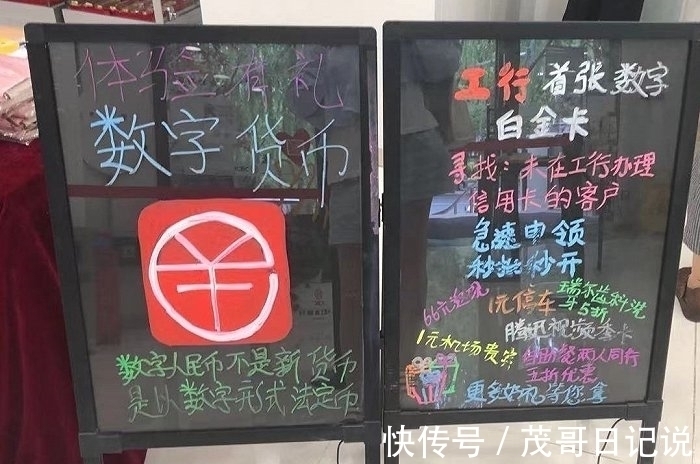 体验有礼
数字货币
数字人民币不是新货币
是以数字形式法定币
工行首张数字
白金卡
寻找:未在工行办理
信用卡的客户
急速申领
秒批秒开
1元停车
瑞尔齿科洗
牙5折
腾讯视频季卡
1元机场贵宾
两人同行
五折优惠
更多好礼等您拿
快传号 / 茂哥日记说